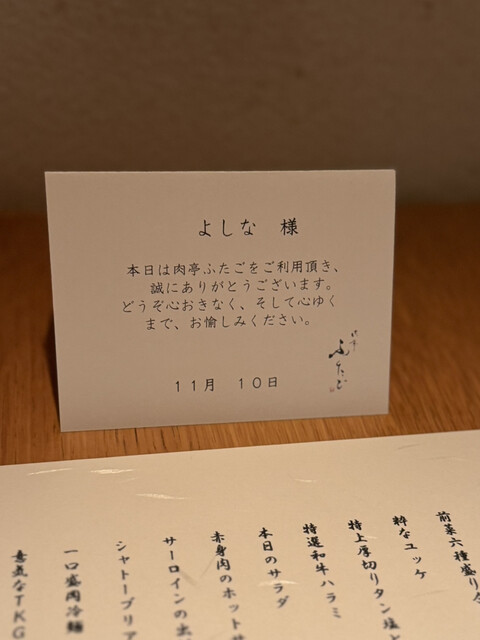 よしな 様
本日は肉亭ふたごをご利用頂き、
誠にありがとうございます。
どうぞ心おきなく、そして心ゆく
まで、お愉しみください。
ふたご
11月 10日
前菜六種盛り
粋なユッケ
特上厚切りタン塩
特選和牛ハラミ
本日のサラダ
赤身肉のホット
サーロインの出
シャトーブリア
一口盛岡冷麺
意気なTKG